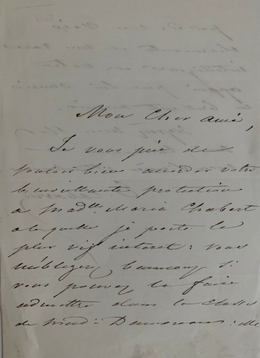 Mon Cher ami,
Je vous prie de
vouloir bien accorder votre
bienveillante protection
à Madlle Maria Chabert
à laquelle je porte le
plus vif interet: vous
m'obligerez beaucoup si
vous pouvez la faire
admettre dans la Classe
de Mad: